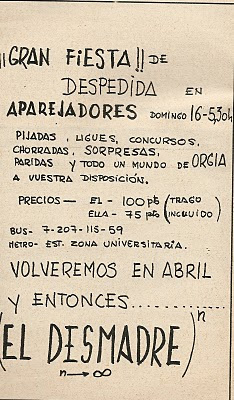 ¡¡GRAN FIESTA!! DE
DESPEDIDA EN
APAREJADORES DOMINGO 16-5,30h
PIJADAS, LIGUES, CONCURSOS,
CHORRADAS, SORPRESAS,
PARIDAS Y TODO UN MUNDO DE ORGIA
A VUESTRA DISPOSICIÓN.
PRECIOS — EL - 100 pts (TRAGO
ELLA - 75 pts INCLUIDO)
BUS - 7-207-115-59
METRO - EST. ZONA UNIVERSITARIA.
VOLVEREMOS EN ABRIL
Y ENTONCES..........
(EL DESMADRE)ⁿ
n→∞